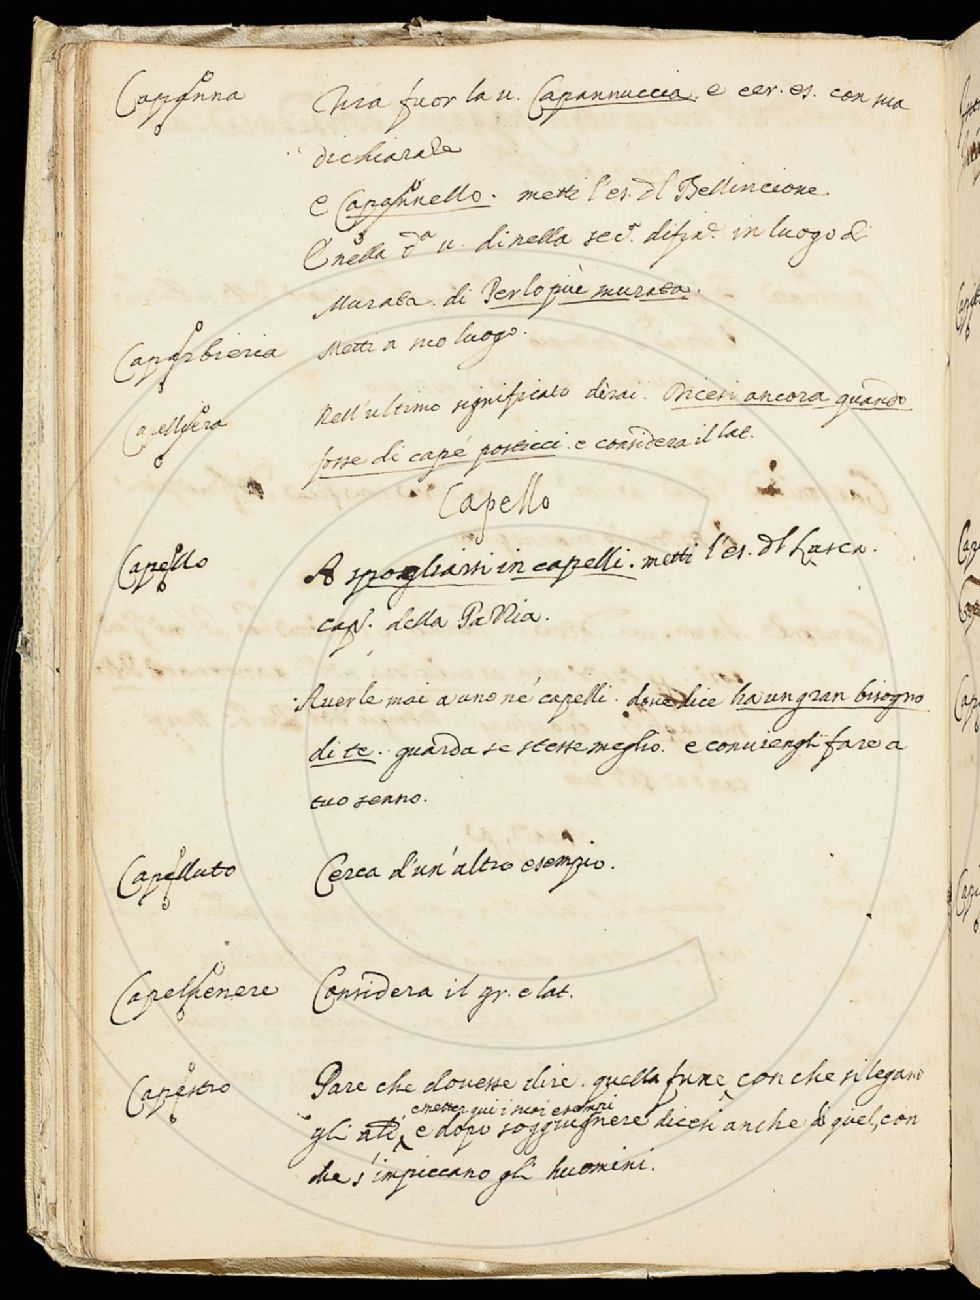 Capanna Tira fuor la u. Capannuccia. e cer. es. con sua
dichiaraz.e
e Capannello. metti l'es. dl Bellincione
E nella d.a u. di nella sec.a difin.e in luogo di
Murata. di Per lo più murata.
Caparbieria Metti a suo luogo.
Capelliera Nell'ultimo significato dirai. Dicesi ancora quando
fosse di cape' posticci. e considera il lat.
Capello
Capello A spogliarsi in capelli. metti l'es. dl Lasca.
cap. della Pazzia.
Auerle mai a uno ne' capelli. doue dice ha un gran bisogno
di te. guarda se stesse meglio. e conuiengli fare a
tuo senno.
Capelluto Cerca d'un'altro esempio.
Capeluenere Considera il gr. e lat.
Capestro Pare che douesse dire. quella fune, con che si legano
e metter qui i suoi esempi
gli ati, e dopo soggiugnere dicesi anche di quel, con
che s'impiccano gli huomini.